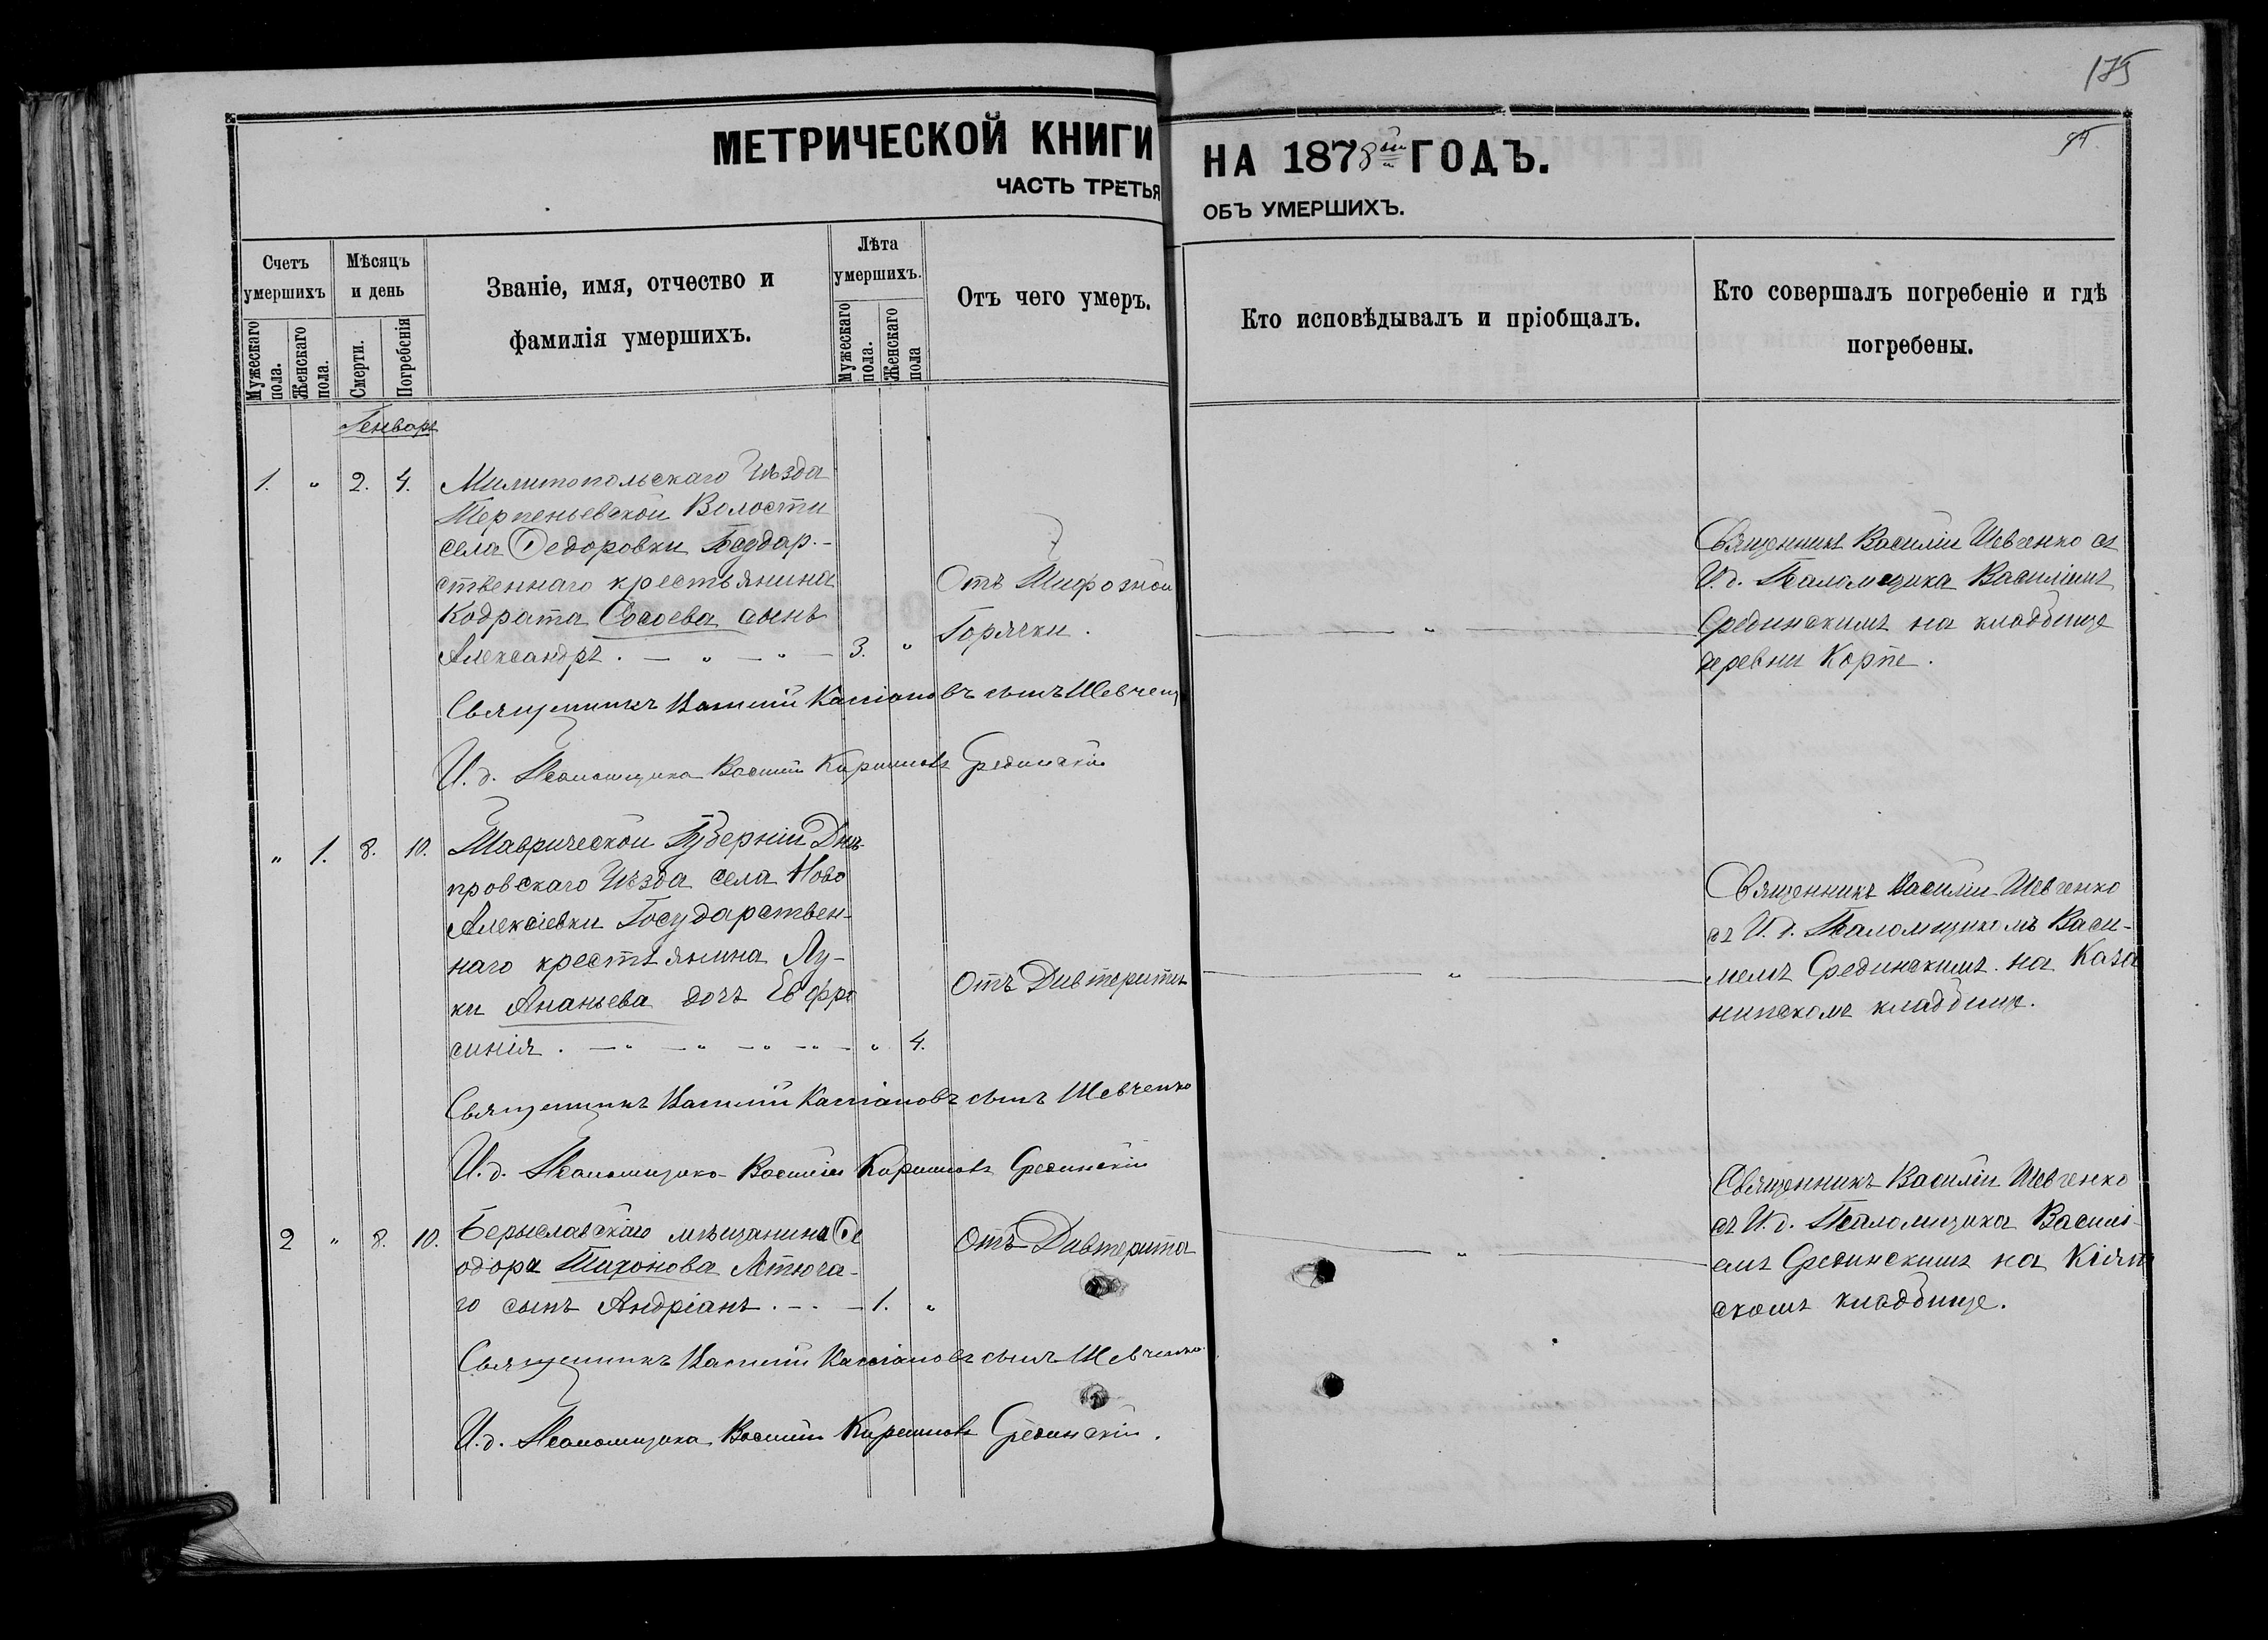 175
МЕТРИЧЕСКОЙ КНИГИ НА 1878й ГОДЪ.
ЧАСТЬ ТРЕТЬЯ ОБЪ УМЕРШИХЪ.
Счетъ умершихъ
Мужескаго пола.
Женскаго пола.
Мѣсяцъ и день
Смерти.
Погребенія
Званіе, имя, отчество и
фамилія умершихъ.
Лѣта умершихъ.
Мужескаго пола.
Женскаго пола
Отъ чего умеръ.
Кто исповѣдывалъ и пріобщалъ.
Кто совершалъ погребеніе и гдѣ
погребены.
Генварь
1. " 2. 4. Милитопольскаго Уѣзда
Терпеньевской Волости
села Федоровки Государ-
ственнаго крестьянина
Кодрата Сосоева сынъ
Александръ . — " — " — 3. "
Отъ Тифозной
Горячки.
"
Священникъ Василій Шевченко съ
И.д. Псаломщика Василіемъ
Срединскимъ на кладбище
деревни Корпе.
Священникъ Василій Кассіановъ сынъ Шевченко
И.д. Псаломщика Василій Кириловъ Срединскій
" 1. 8. 10. Таврической Губерніи Днѣ-
провскаго Уѣзда села Ново
Алексіевки Государствен-
наго крестьянина Лу-
ки Ананьева дочь Евфро
синія . — " — " — " — " — " 4.
Отъ Дивтерита
"
Священникъ Василій Шевченко
съ И.д. Псаломщикомъ Васи-
лемъ Срединскимъ на Каза
кладбище.
Священникъ Василій Кассіановъ сынъ Шевченко
И.д. Псаломщика Василій Кириловъ Срединскій
2 " 8. 10. Бериславскаго мѣщанина Фе
одора Тихонова
го сынъ Андріанъ . — . — 1. "
Отъ Дивтерита
"
Священникъ Василій Шевченко
съ И.д. Псаломщика Василі-
емъ Срединскимъ на Кіят
скомъ кладбище.
Священникъ Василій Кассіановъ сынъ Шевченко
И.д. Псаломщика Василій Кириловъ Срединскій.